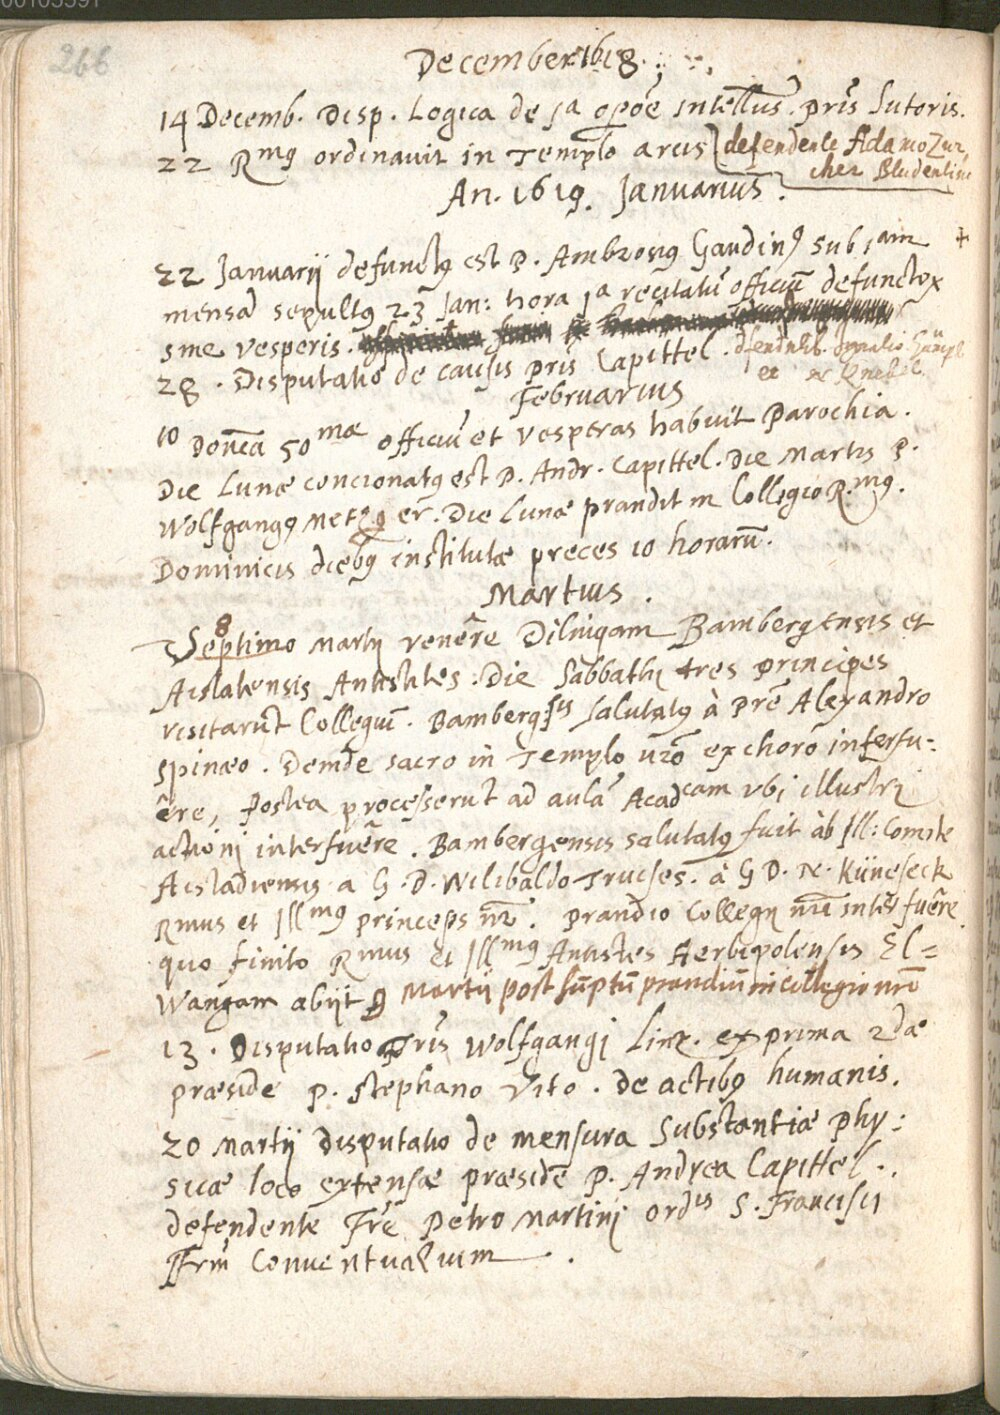 266
December 1618.
14 Decemb. Disp. Logica de 1a opõe intellus. pris Sutoris.
22 Rmus ordinavit in Templo arcis defendente Adamo Zur
cher Bludentino
An. 1619. Januarius.
22 Januarij defunctus est P. Ambrosius Gaudinus sub 1am +
mensã sepultus 23 Jan: hora 1a recitatũ officiũ defunctorum
sine vesperis.
28. Disputatio de causis pris Capittel. defendentib. Ignatio
et
Februarius
10 Donĩca 50mae officiũ et vesperas habuit Parochia.
Die Lunae concionatus est P. Andr. Capittel. Die Martis P.
Wolfgangus Metzger. Die Lunae prandit in Collegio R.mus.
Dominicis diebus institutae preces 10 horarũ.
Martius.
8
Septimo Martij venere Dilingam Bambergensis et
Aistatensis Antistites. Die Sabbathi tres principes
visitarũt Collegiũ. Bambergensis salutatus à Prẽ Alexandro
Spinaeo. Deinde sacro in Templo nr̃o ex choro interfu-
ere, Postea processerũt ad aulã Acadcam ubi illustri
actioni interfuere. Bambergensis salutatus fuit ab Ill: Comite
Aistadiensis a G. D. Wilibaldo Truchses. à G D. N. Küneseck
Rmus et Illmus princeps nr̃. prandio Collegij nr̃i interfuere
quo finito Rmus et Illmus Antistes Herbipolensis El=
Wangam abijt 9 Martij post sũptũ prandiũ in collegio nr̃o
13. Disputatio Fris Wolfgangi Linx. ex prima 2dae
praeside P. Stephano Vito. de actibus humanis.
20 Martij disputatio de mensura Substantiae phy:
sicae loco extensae praeside P. Andrea Capittel.
defendente Frẽ Petro Martini ordis S. Francisci
Frm̃ Conventualium.